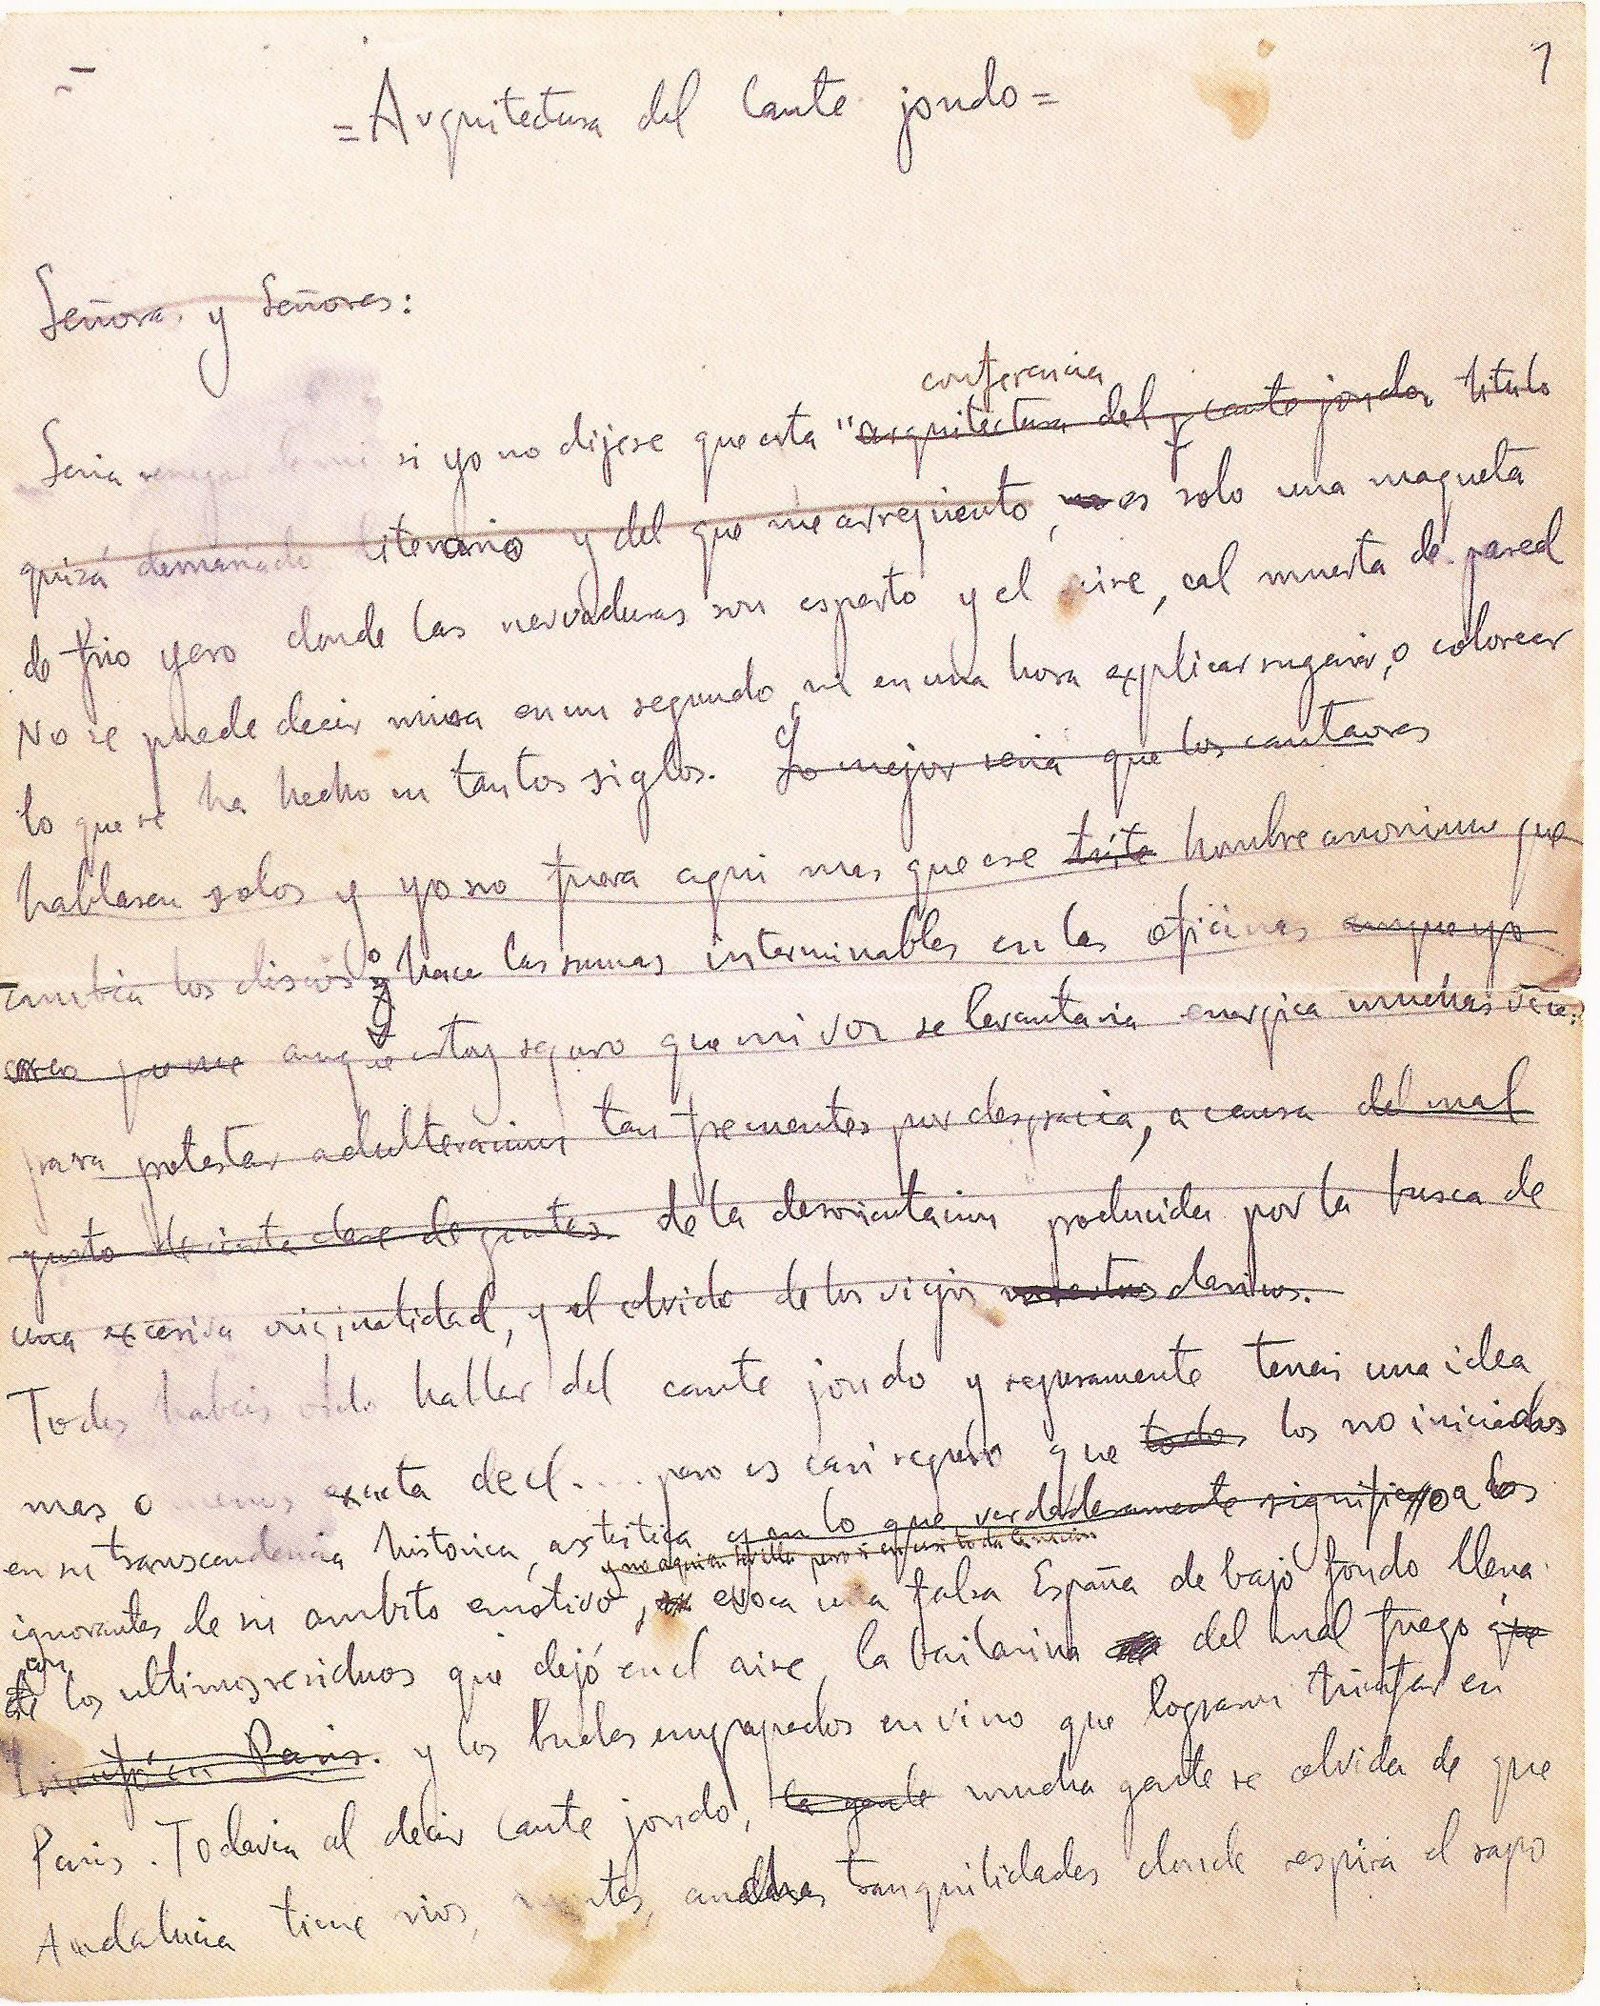 1
=Arquitectura del Cante jondo=
Señoras y Señores:
conferencia
Seria renegar de mi si yo no dijese que esta "arquitectura del cante jondo, titulo
quizá demasiado literario y del que me arrepiento, no es solo una maqueta
de frio yeso donde las nervaduras son esparto y el aire, cal muerta de pared
No se puede decir misa en un segundo, ni en una hora explicar sugerir, o colorear
lo que se ha hecho en tantos siglos. Lo mejor seria que los cantaores
hablasen solos y yo no fuera aqui mas que ese triste hombre anonimo que
cambia los discos o hace las sumas interminables en las oficinas aunque yo
creo que me aunque estoy seguro que mi voz se levantaria energica muchas veces
para protestar adulteraciones tan frecuentes por desgracia, a causa del mal
gusto de cierta clase de gentes. de la desorientacion producida por la busca de
una excesiva originalidad, y el olvido de los viejos maestros clasicos.
Todos habeis oido hablar del cante jondo y seguramente teneis una idea
mas o menos exacta de el.... pero es casi seguro que todos los no iniciados
en su transcendencia historica, artistica y en lo que verdaderamente significa o a los
y no aqui en Sevilla pero si en casi toda la nacion
ignorantes de su ambito emotivo, evoca una falsa España de bajo fondo llena
con
de los ultimos residuos que dejó en el aire, la bailarina del mal fuego que
triunfó en Paris. y los bucles empapados en vino que logran triunfar en
Paris. Todavia al decir Cante jondo, la gente mucha gente se olvida de que
Andalucia tiene rios, montes, anchas tranquilidades donde respira el sapo